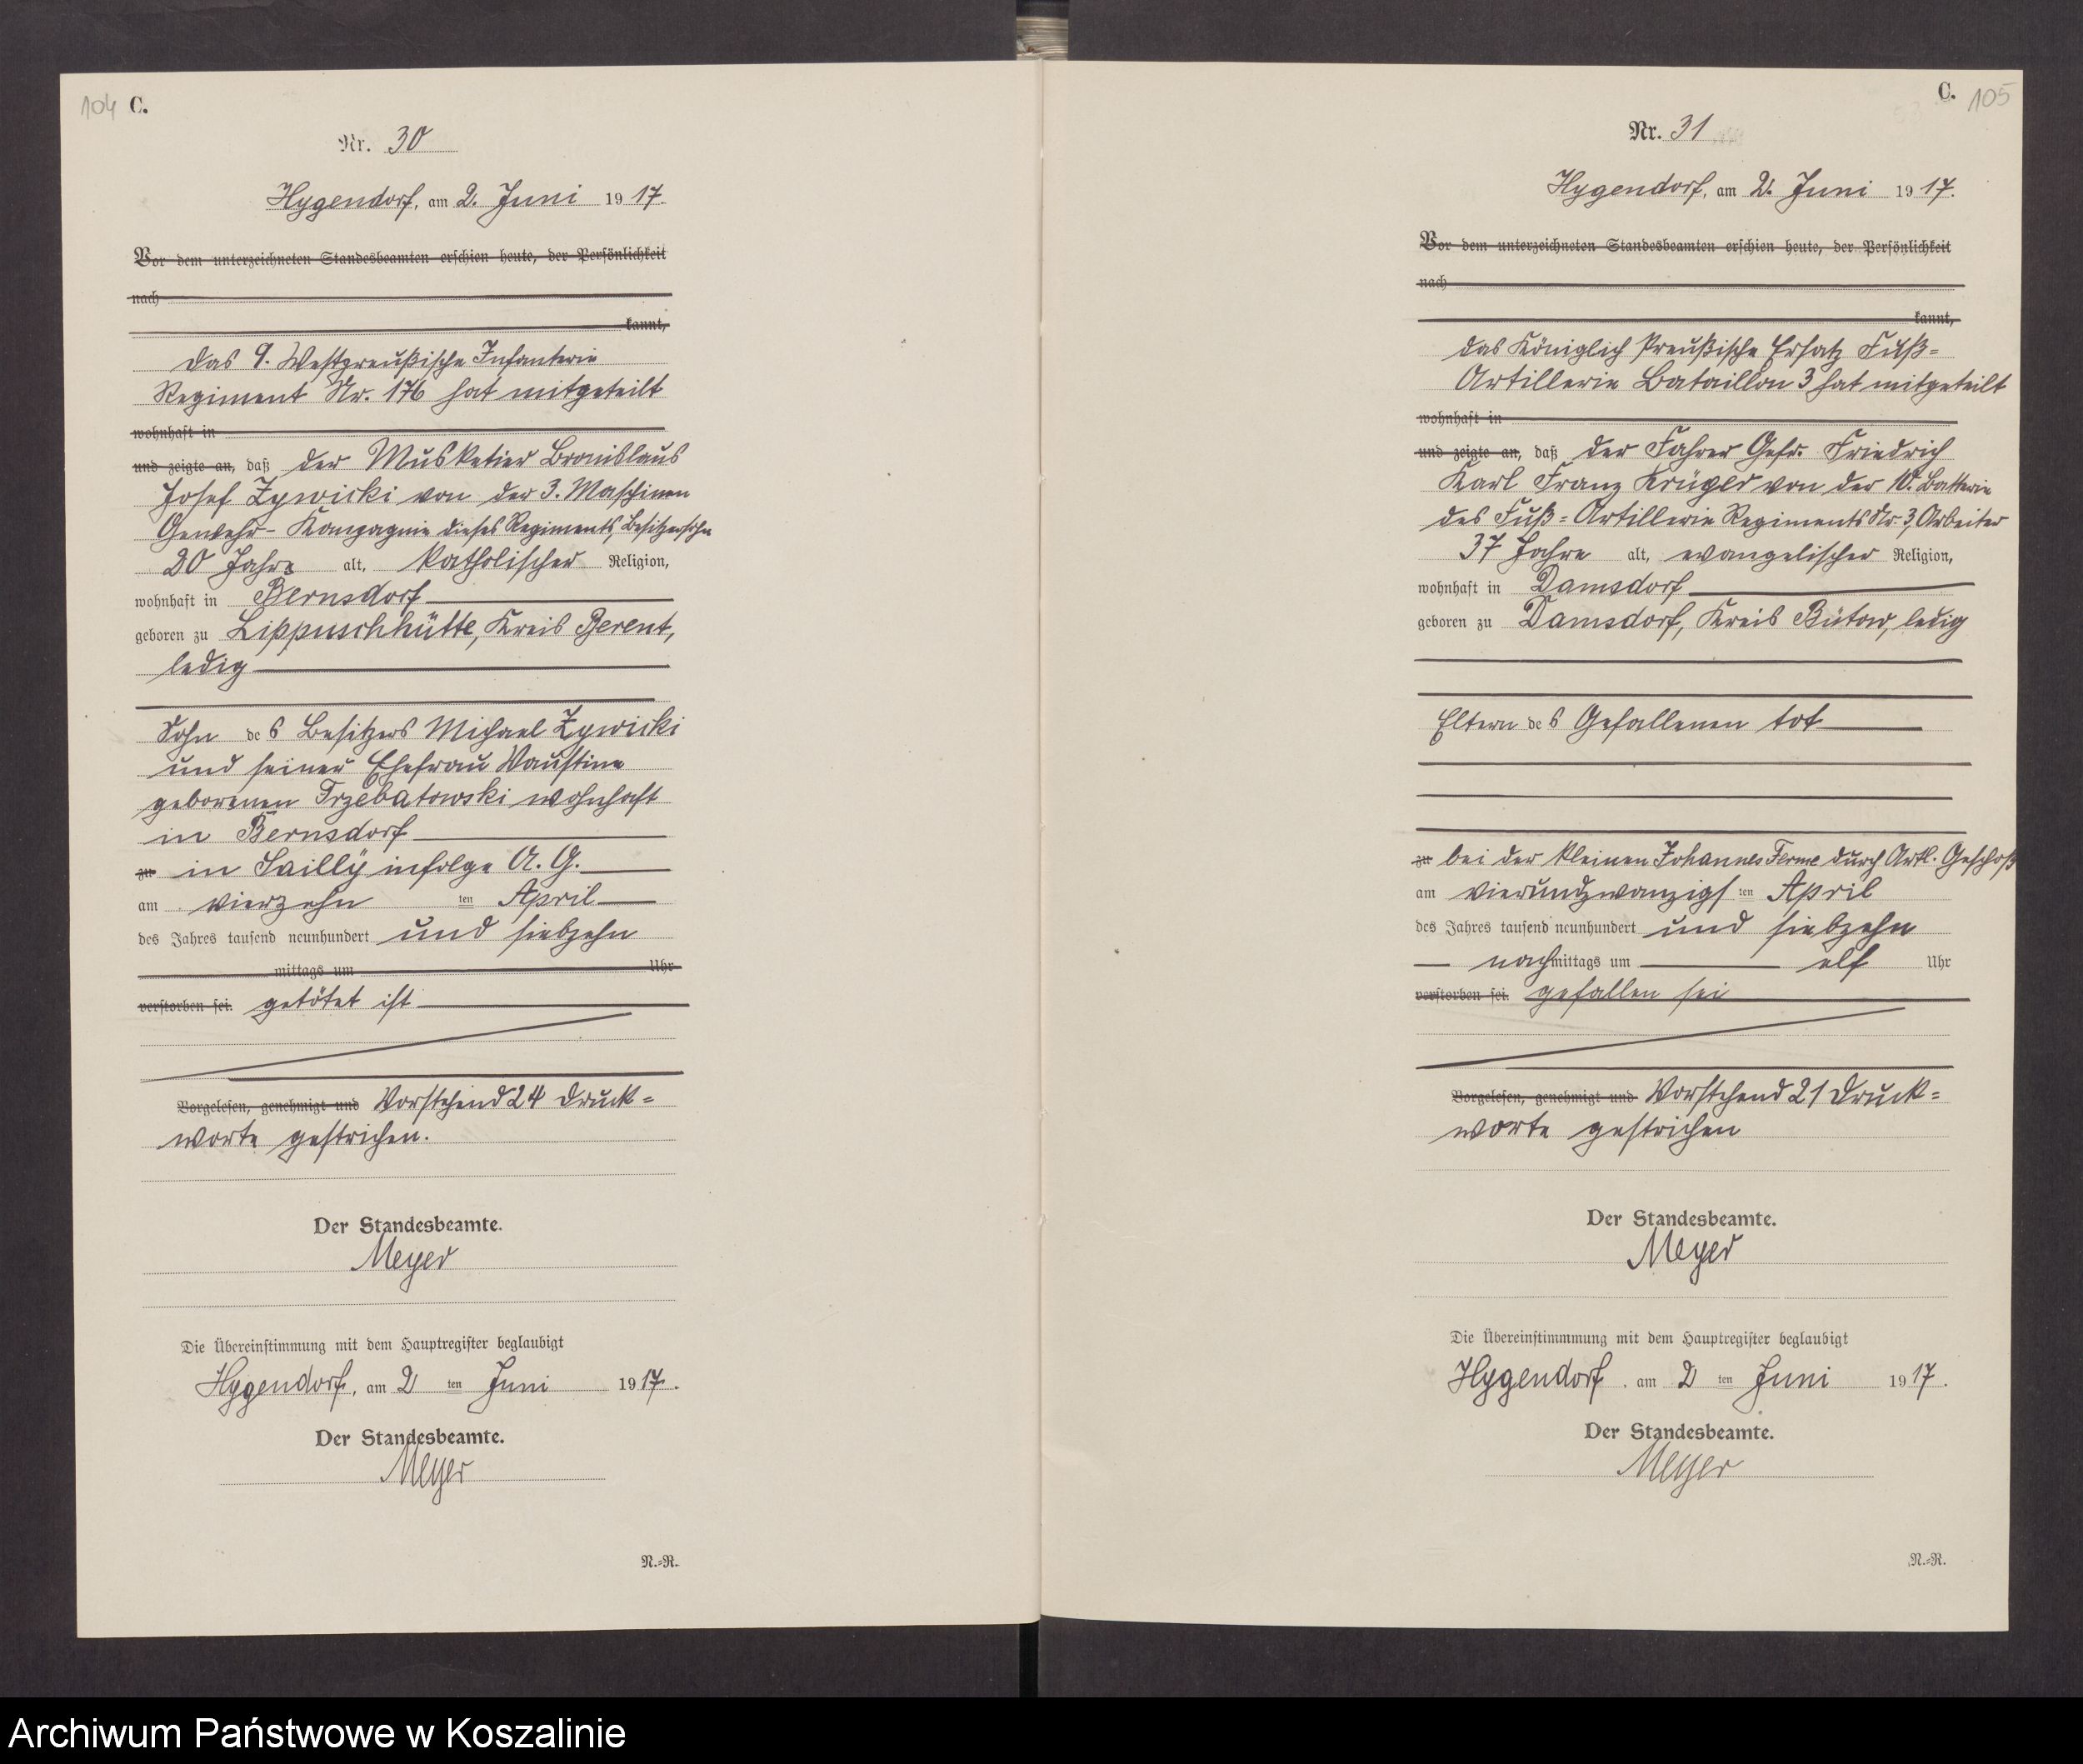 104 C.
Nr. 30
Hygendorf, am 2. Juni 1917.
Vor dem unterzeichneten Standesbeamten erschien heute, der Persönlichkeit
nach
kannt,
das 9. Westpreußische Infanterie
Regiment Nr. 176 hat mitgeteilt
wohnhaft in
und zeigte an, daß der Musketier Bronislaus
Josef Zywicki von der 3. Maschinen
Gewehr- Kompagnie dieses Regiments, Besitzersohn
20 Jahre alt, katholischer Religion,
wohnhaft in Bernsdorf
geboren zu Lippuschhütte, Kreis Berent,
ledig
Sohn des Besitzers Michael Zywicki
und seiner Ehefrau
geborenen Trzebatowski wohnhaft
in Bernsdorf
zu in Sailly infolge A. G.
am vierzehn ten April
des Jahres tausend neunhundert und siebzehn
mittags um Uhr
verstorben sei. getötet ist
Vorgelesen, genehmigt und Vorstehend 24 Druck=
worte gestrichen.
Der Standesbeamte.
Meyer
Die Übereinstimmung mit dem Hauptregister beglaubigt
Hygendorf, am 2 ten Juni 1917.
Der Standesbeamte.
Meyer
N.=R.
C. 105
Nr. 31
Hygendorf, am 2. Juni 1917.
Vor dem unterzeichneten Standesbeamten erschien heute, der Persönlichkeit
nach
kannt,
das Königlich Preußische Ersatz Fuß=
Artillerie Bataillon 3 hat mitgeteilt
wohnhaft in
und zeigte an, daß der Fahrer Gefr. Friedrich
Karl Franz Krüger von der 10. Batterie
des Fuß=Artillerie Regiments Nr. 3, Arbeiter
37 Jahre alt, evangelischer Religion,
wohnhaft in Damsdorf
geboren zu Damsdorf, Kreis Bütow, ledig
Eltern des Gefallenen tot
zu bei der kleinen Johannes Ferme durch Artl. Geschoß
am vierundzwanzigsten April
des Jahres tausend neunhundert und siebzehn
nachmittags um elf Uhr
verstorben sei. gefallen sei
Vorgelesen, genehmigt und Vorstehend 21 Druck=
worte gestrichen
Der Standesbeamte.
Meyer
Die Übereinstimmmung mit dem Hauptregister beglaubigt
Hygendorf. am 2 ten Juni 1917.
Der Standesbeamte.
Meyer
N.=R.
Archiwum Państwowe w Koszalinie